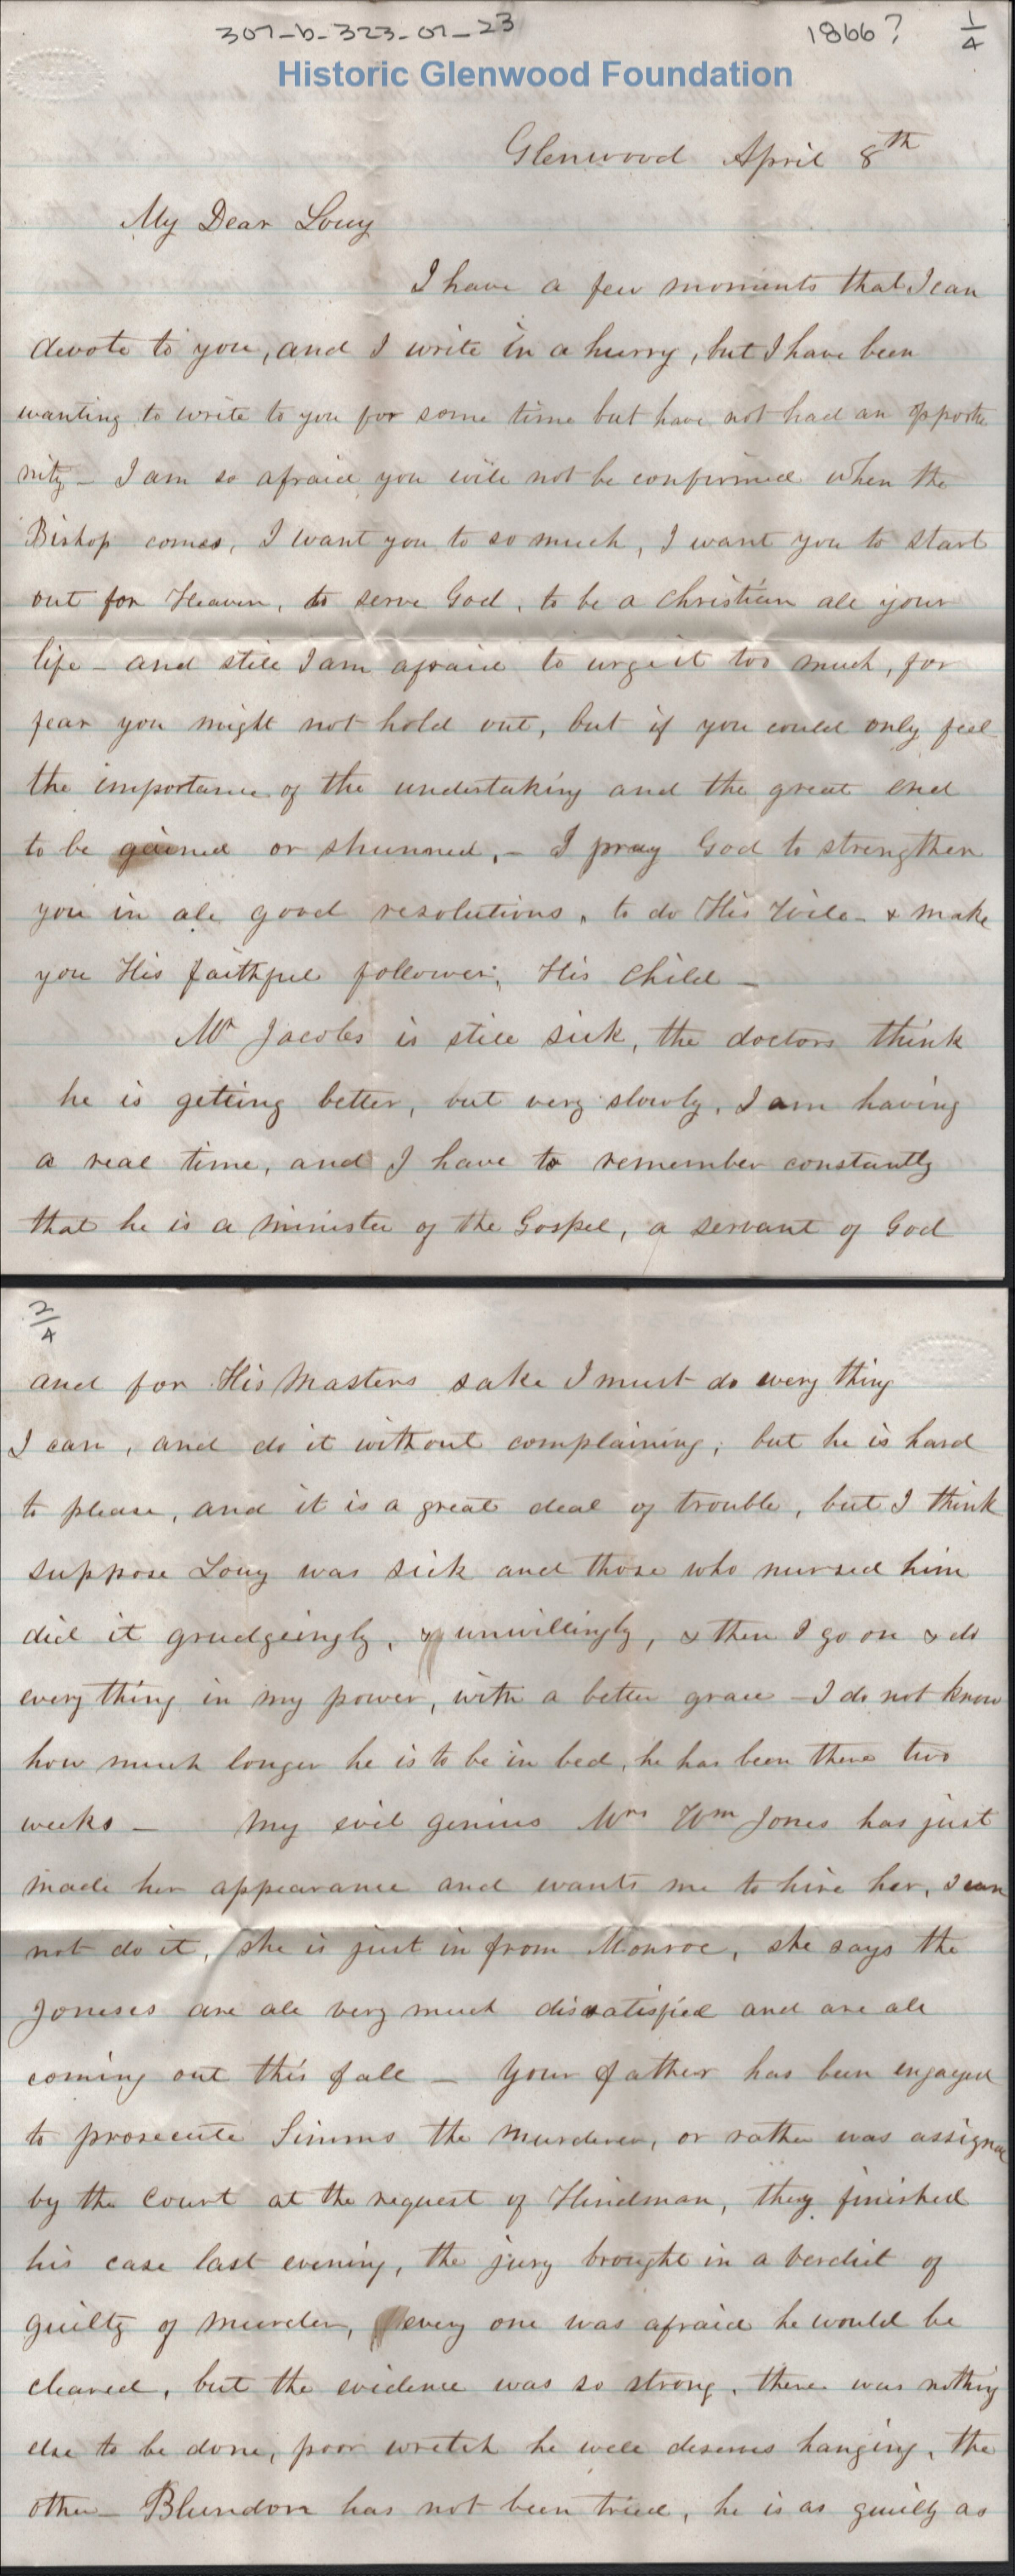 307-b-323-01-23
1866?
1/4
Historic Glenwood Foundation
Glenwood April 8th
My Dear Louy
I have a few moments that I can
devote to you, and I write in a hurry, but I have been
wanting to write to you for some time but have not had an opportu
nity - I am so afraid you will not be confirmed when the
Bishop comes, I want you to so much, I want you to start
out for Heaven, to serve God, to be a christian all your
life - and still I am afraid to urge it too much, for
fear you might not hold out, but if you could only feel
the importance of the undertaking and the great end
to be gained or shunned, - I pray God to strengthen
you in all good resolutions, to do His Will - & make
you His faithful follower, His child -
Mr Jacobs is still sick, the doctors think
he is getting better, but very slowly, I am having
a real time, and I have to remember constantly
that he is a minister of the Gospel, a servant of God
2/4
and for His Masters sake I must do every thing
I can, and do it without complaining, but he is hard
to please, and it is a great deal of trouble, but I think
suppose Louy was sick and those who nursed him
did it grudgeingly, & unwillingly, & then I go on & do
every thing in my power, with a better grace - I do not know
how much longer he is to be in bed, he has been there two
weeks - My evil genius Mrs Wm Jones has just
made her appearance and wants me to hire her, I can
not do it, she is just in from Monroe, she says the
Joneses are all very much dissatisfied and are all
coming out this fall - Your father has been engaged
to prosecute Simms the murderer, or rather was assigned
by the Court at the request of Hindman, they finished
his case last evening, the jury brought in a verdict of
guilty of murder, every one was afraid he would be
cleared, but the evidence was so strong, there was nothing
else to be done, poor wretch he well deserves hanging, the
other - Blundon has not been tried, he is as guilty as